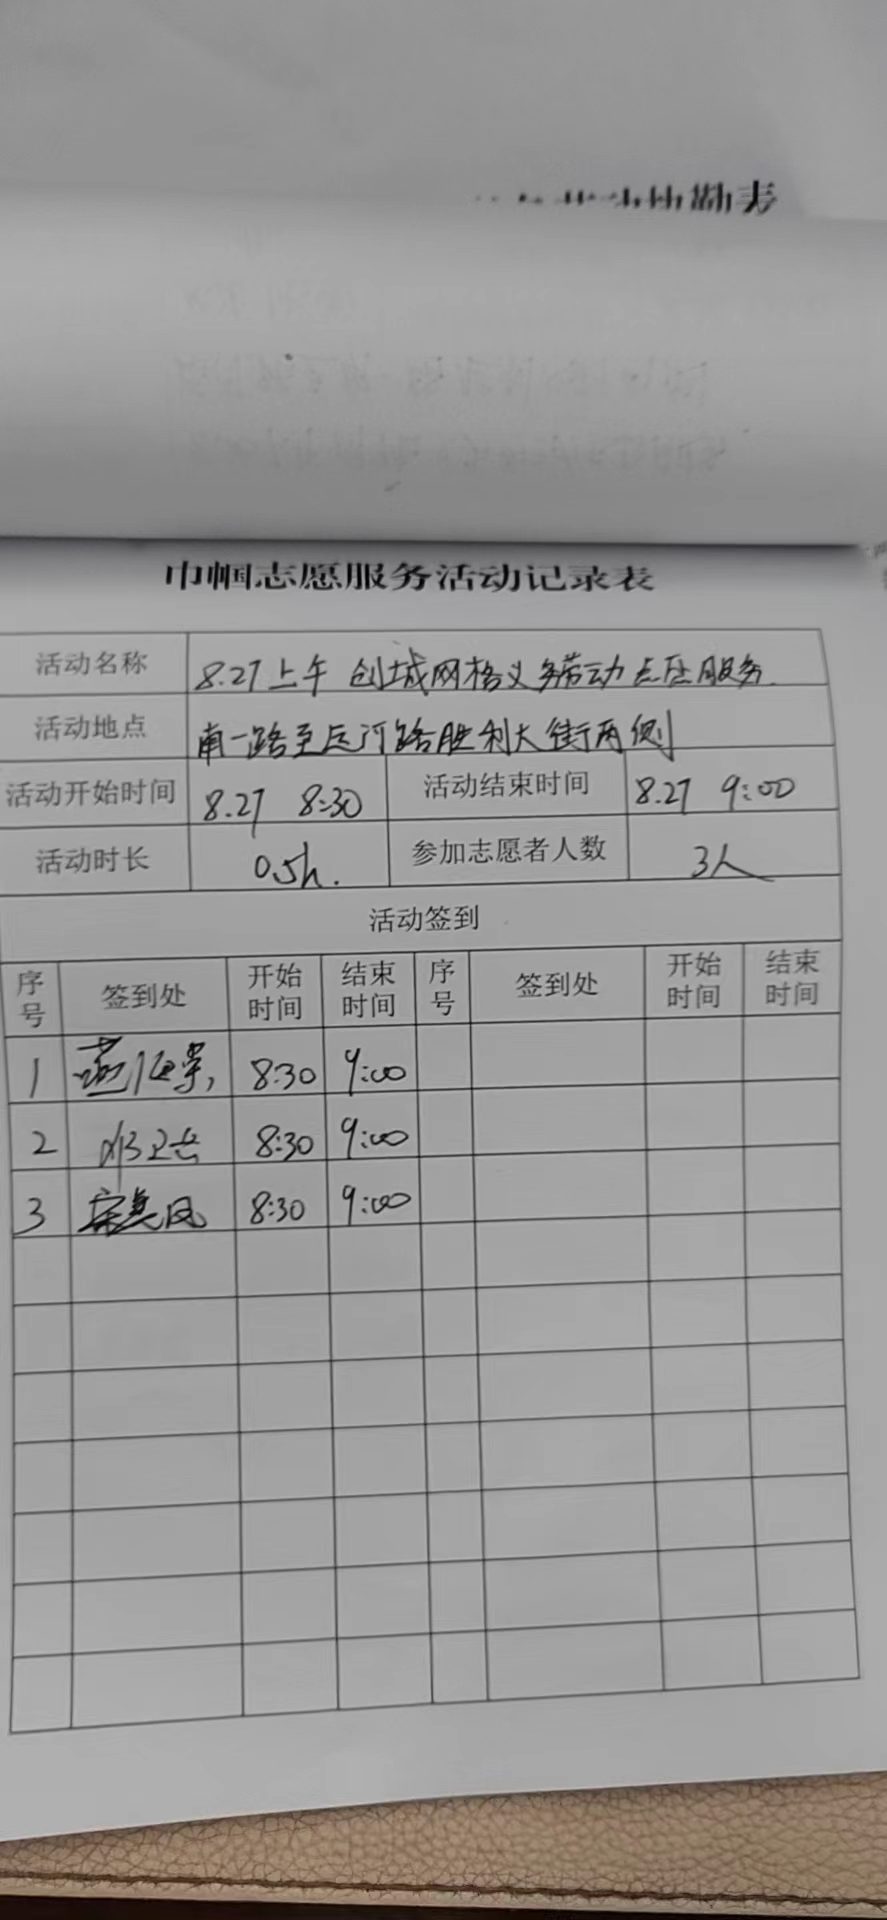 勤表
巾帼志愿服务活动记录表
活动名称 8.27上午 创城网格义务劳动志愿服务
活动地点 南一路至运河路胜利大街两侧
活动开始时间 8.27 8:30 活动结束时间 8.27 9:00
活动时长 0.5h. 参加志愿者人数 3人
活动签到
序号 签到处 开始时间 结束时间 序号 签到处 开始时间 结束时间
1 8:30 9:00
2 8:30 9:00
3 宋美凤 8:30 9:00